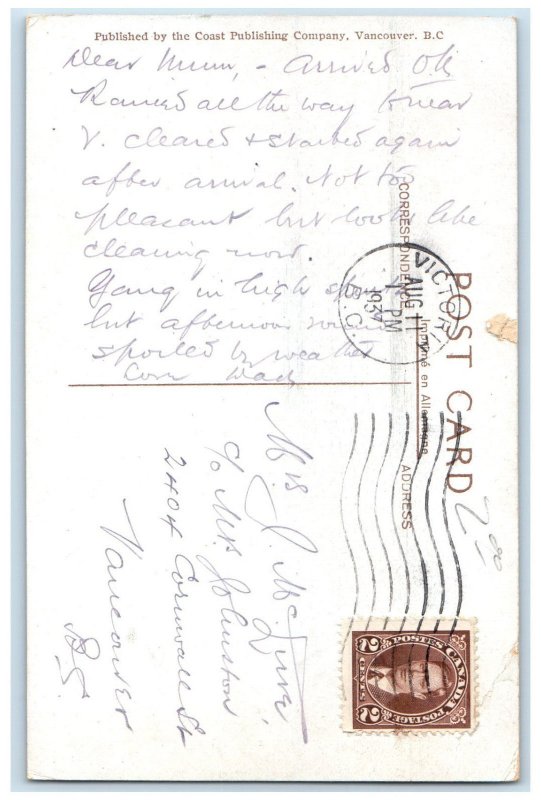 Published by the Coast Publishing Company, Vancouver. B.C
Dear Mum, - Arrived OK
Rained all the way to near
V. cleared & started again
after arrival. Not too
pleasant but looks like
clearing now.
Gang in high spirits
but afternoon
spoiled by weather
Dad
CORRESPONDENCE
POST CARD
Imprimé en Allemagne
ADDRESS
VICTORIA
AUG 11
PM
B.C.
Mrs J.
c/o Mrs Johnston
2404 Cornwall St
Vancouver
B.C.
2.00
POSTES CANADA POSTAGE
2 CENTS 2